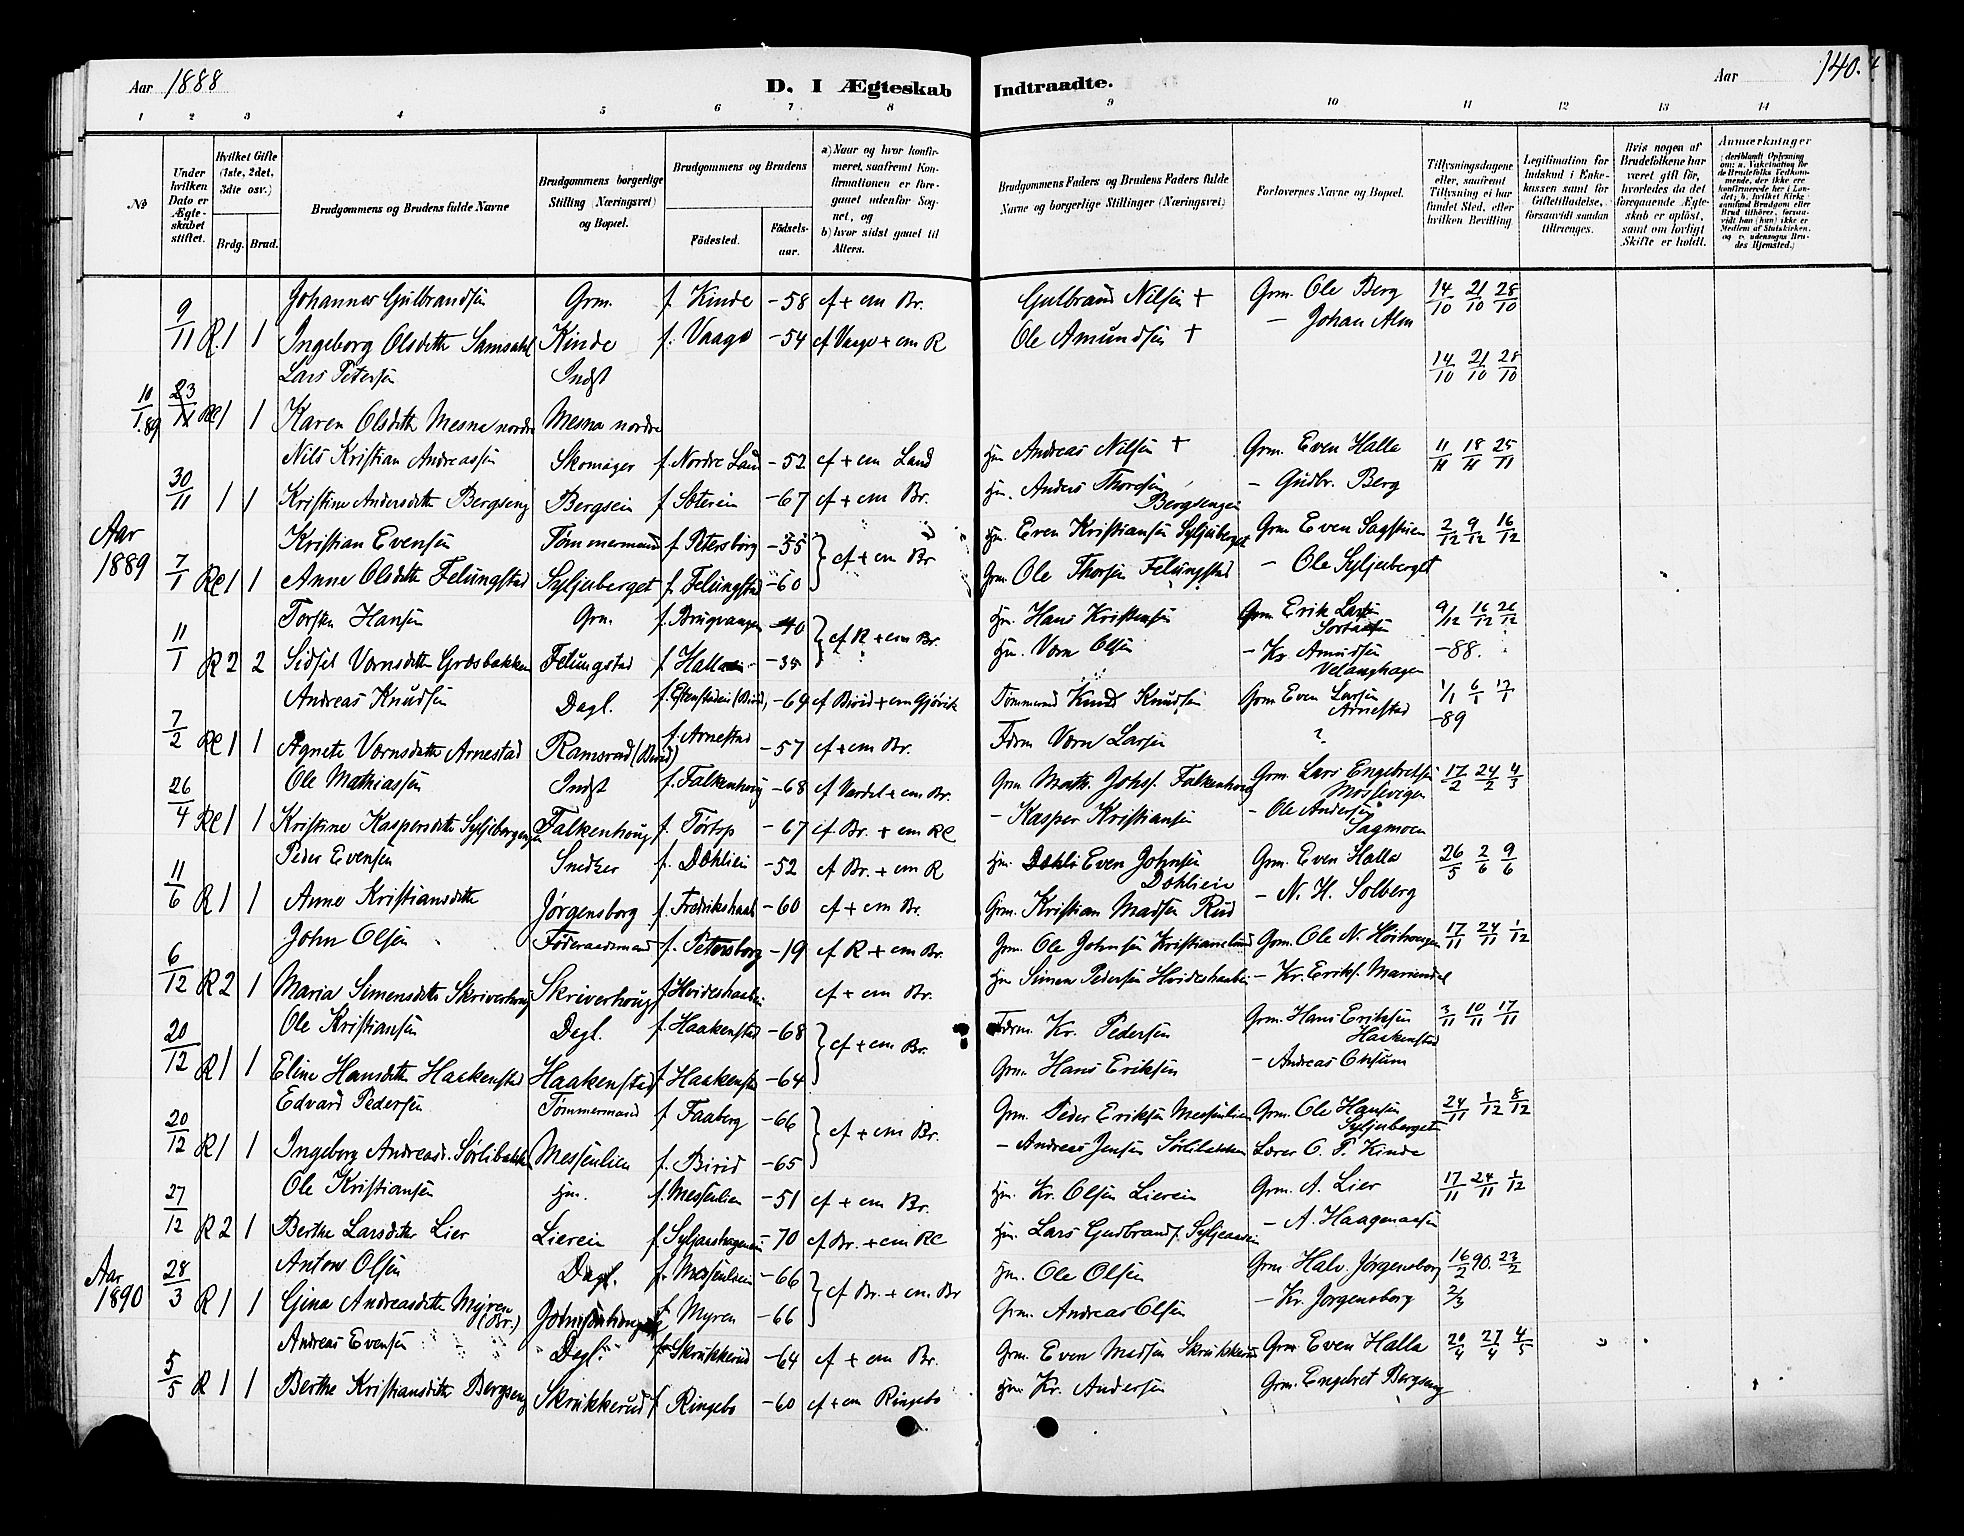 Aar 1888 D. I Ægteskab Indtraadte. Aar 140.
1 2 3 4 5 6 7 8 9 10 11 12 13 14
№
Under hvilken Dato er Ægteskabet stiftet.
Hvilket Gifte (1ste, 2det, 3die osv.)
Brdg. Brud.
Brudgommens og Brudens fulde Navne
Brudgommens borgerlige Stilling (Næringsvei) og Bopæl.
Brudgommens og Brudens
Födested. Födselsaar.
a) Naar og hvor konfirmeret, saafremt Konfirmationen er foregaaet udenfor Sognet, og
b) hvor sidst gaaet til Alters.
Brudgommens Faders og Brudens Faders fulde Navne og borgerlige Stillinger (Næringsvei)
Forlovernes Navne og Bopæl.
Tillysningsdagene eller, saafremt Tillysning ei har fundet Sted, efter hvilken Bevilling
Legitimation for Indskud i Enkekassen samt for Giftetilladelse, forsaavidt saadan tiltrænges.
Hvis nogen af Brudefolkene har været gift før, hvorledes da det foregaaende Ægteskab er opløst, samt om lovligt Skifte er holdt.
Anmærkninger
Johannes Gulbrandsen Grm. f. Kinde -58 cf + cm Br. Gulbrand Nilsen + Grm. Ole Berg 14/10 21/10 28/10
9/11 R 1 1 Ingeborg Olsdtr Samsahl Kinde f. Vaage -54 cf Vaage + cm R Ole Amundsen + — Johan Alm
Lars Petersen Indst 14/10 21/10 28/10
10/1 89 23/11 Re 1 1 Karen Olsdtr Mesna nordre Mesna nordre
Nils Kristian Andreassen Skomager f. Nordre Land -52 cf + cm Land Hm Andreas Nilsen + Grm. Even Halla 11/11 18/11 25/11
30/11 1 1 Kristine Andersdtr Bergseng Bergsein -67 cf + cm Br. Hm. Anders Thoresen Bergsengen — Gudbr. Berg
Aar 1889
Kristian Evensen Tømmermand f. Petersborg -55 } cf + cm Br Hm. Even Kristiansen Syljuberget Grm Even Sagstuen 2/12 9/12 16/12
7/1 Re 1 1 Anne Olsdtr Felungstad Syljuberget f. Felungstad -60 Grm Ole Thorsen Felungstad — Ole Syljuberget
Torsten Hansen Grm. -40 } cf R + cm Br. Hm. Hans Kristensen Grm Erik Larsen 9/12 16/12
11/1 R 2 2 Sidsel Vornsdtr Græsbakken Felungstad -35 Hm. Vorn Olsen — Kr. Amundsen Velanghagen -88.
Andreas Knudsen Dagl. -69 cf Birid + cm Gjøvik Tømmermd Knud Knudsen Grm Even Larsen Arnestad 1/1 6/1 -89
7/2 Re 1 1 Agnete Vornsdtr Arnestad Ramsrud (Birid) f. Arnestad -57 cf + cm Br. Fdrm Vorn Larsen ?
Ole Mathiassen Indst f. Falkenhoug -68 cf Vardal + cm Br. Grm Math. Johs. Falkenhoug Grm. Lars Engebretsen Mossevigen 17/2 24/2 4/3
26/4 Re 1 1 Kristine Kaspersdtr Syljubergengen Falkenhoug f. Tortop -67 cf. Br. + cm Re — Kasper Kristiansen — Ole Andersen Sagmoen
Peder Evensen Snedker f. Dæhlien -52 cf Br. + cm R Hm. Dæhli Even Johnsen Dæhlien Grm. Even Halla 26/5 2/6 9/6
11/6 R 1 1 Anne Kristiansdtr Jørgensborg f. Fredrikshaab -60 cf + cm Br. Grm. Kristian Madsen Rud — N. H. Solberg
John Olsen Føderaadsmand f. Petersborg -19 cf R + cm Br. Grm. Ole Johnsen Kristianslund Grm. Ole N. Høihaugen 17/11 24/11 1/12
6/12 R 2 1 Maria Simensdtr Skriverhoug Skriverhoug f. Hvideshaabe cf + cm Br. Hm Simen Pedersen Hvideshaabe — Kr. Eriks. Mariendal
Ole Kristiansen Dagl. f. Haakenstad -68 } cf + cm Br. Fdrm. Kr. Pedersen Grm. Hans Eriksen Haakenstad 3/11 10/11 17/11
20/12 R 1 1 Eline Hansdtr Haakenstad Haakenstad f. Haakenst -64 Grm. Hans Eriksen — Andreas Onsum
Edvard Pedersen Tømmermand f. Faaberg -66 } cf + cm Br. Grm. Peder Eriksen Messenlien Grm. Ole Hansen Syljuberget 24/11 1/12 8/12
20/12 R 1 1 Ingeborg Andreasd. Sørlibakken Messenlien f. Birid -65 — Andreas Jensen Sørlibakken Lærer O. P. Kinde
Ole Kristiansen Hm. f. Messenlien -51 cf + cm Br. Hm. Kr. Olsen Lierein Grm. A. Lier 17/11 24/11 1/12
27/12 R 2 1 Berthe Larsdtr Lier Lierein -70 cf. Br. + cm Re Hm. Lars Gudbrands. — A. Haagenasen
Aar 1890
Anton Olsen Dagl. f. Messenlien -66 } cf Br. + cm Br Hm. Ole Olsen Grm Halv. Jørgensborg 16/2 90. 23/2
28/3 R 1 1 Gina Andreasdtr Myren (Br.) f Myren -66 Grm. Andreas Olsen — Kr. Jørgensborg 2/3
Andreas Evensen Dagl. f. Skrukkerud -64 cf + cm Br. Grm. Even Madsen Skrukkerud Grm Even Halla 20/4 27/4 4/5
5/5 R 1 1 Berthe Kristiansdtr Bergseng Skrukkerud f Ringebo -60 cf + cm Ringebo Hm Kr. Andersen Grm. Engebret Bergseng